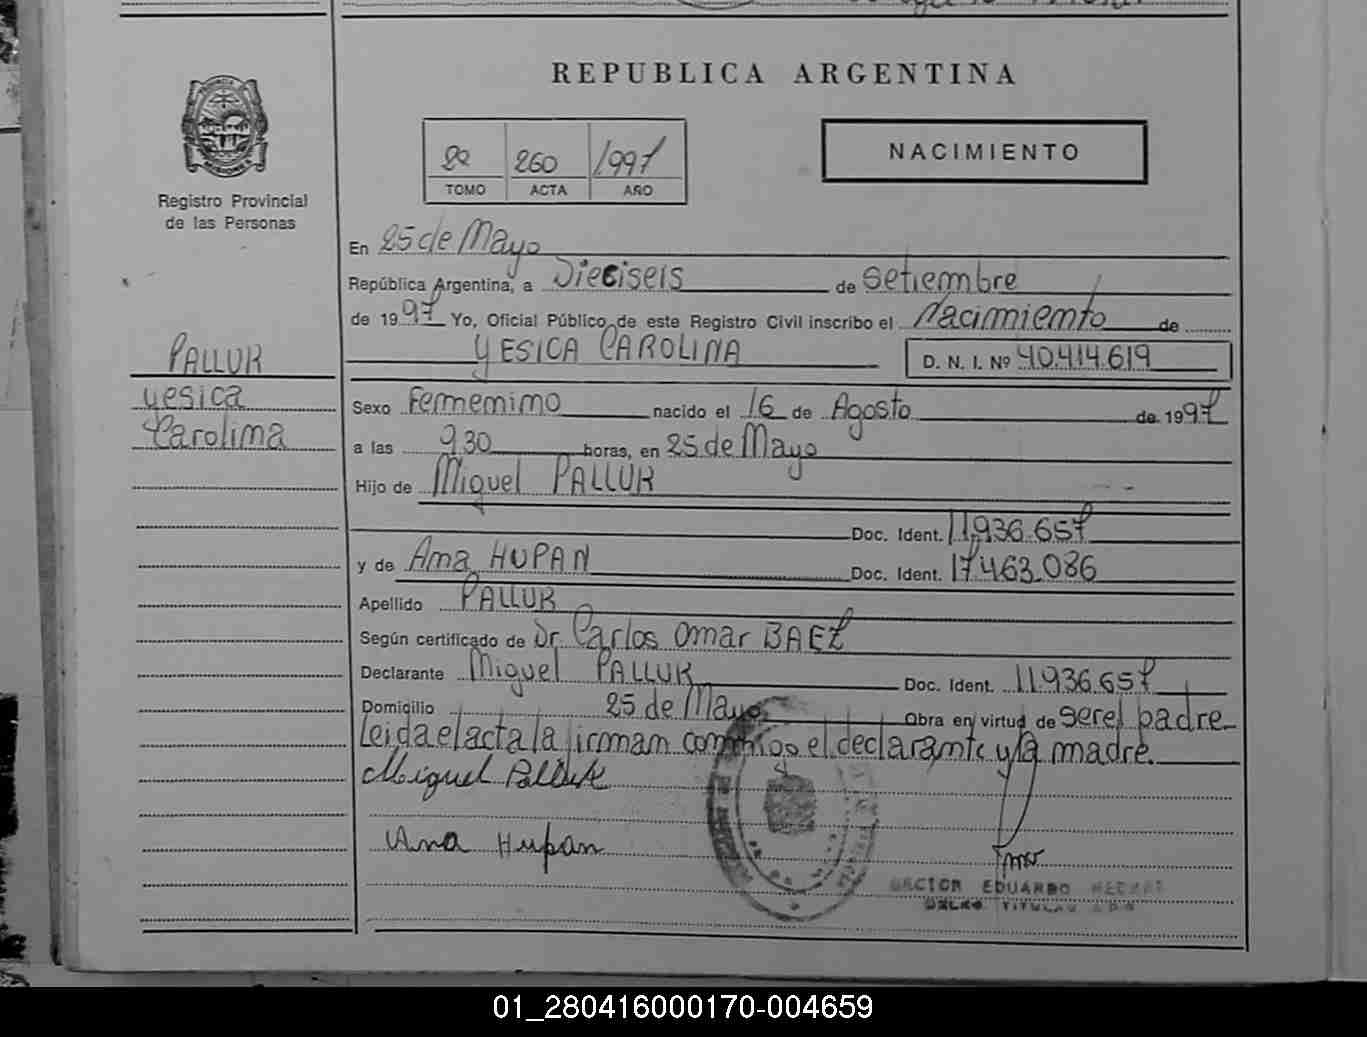 REPUBLICA ARGENTINA
Registro Provincial
de las Personas
20 260 1997
TOMO ACTA AÑO
NACIMIENTO
En 25 de Mayo
República Argentina, a Dieciseis de Setiembre
de 1997 Yo, Oficial Público de este Registro Civil inscribo el Nacimiento de
YESICA CAROLINA D. N. I. Nº 40.414.619
PALLUK
yesica
Carolina
Sexo Femenino nacido el 16 de Agosto de 1997
a las 9 30 horas, en 25 de Mayo
Hijo de Miguel PALLUK
Doc. Ident. 11.936.657
y de Ana HUPAN Doc. Ident. 17.463.086
Apellido PALLUK
Según certificado de Dr. Carlos Omar BAEZ
Declarante Miguel PALLUK Doc. Ident. 11.936.657
Domicilio 25 de Mayo Obra en virtud de ser el padre
Leida el acta la firman conmigo el declarante y la madre.
Miguel Palluk
Ana Hupan
EDUARDO
01_280416000170-004659